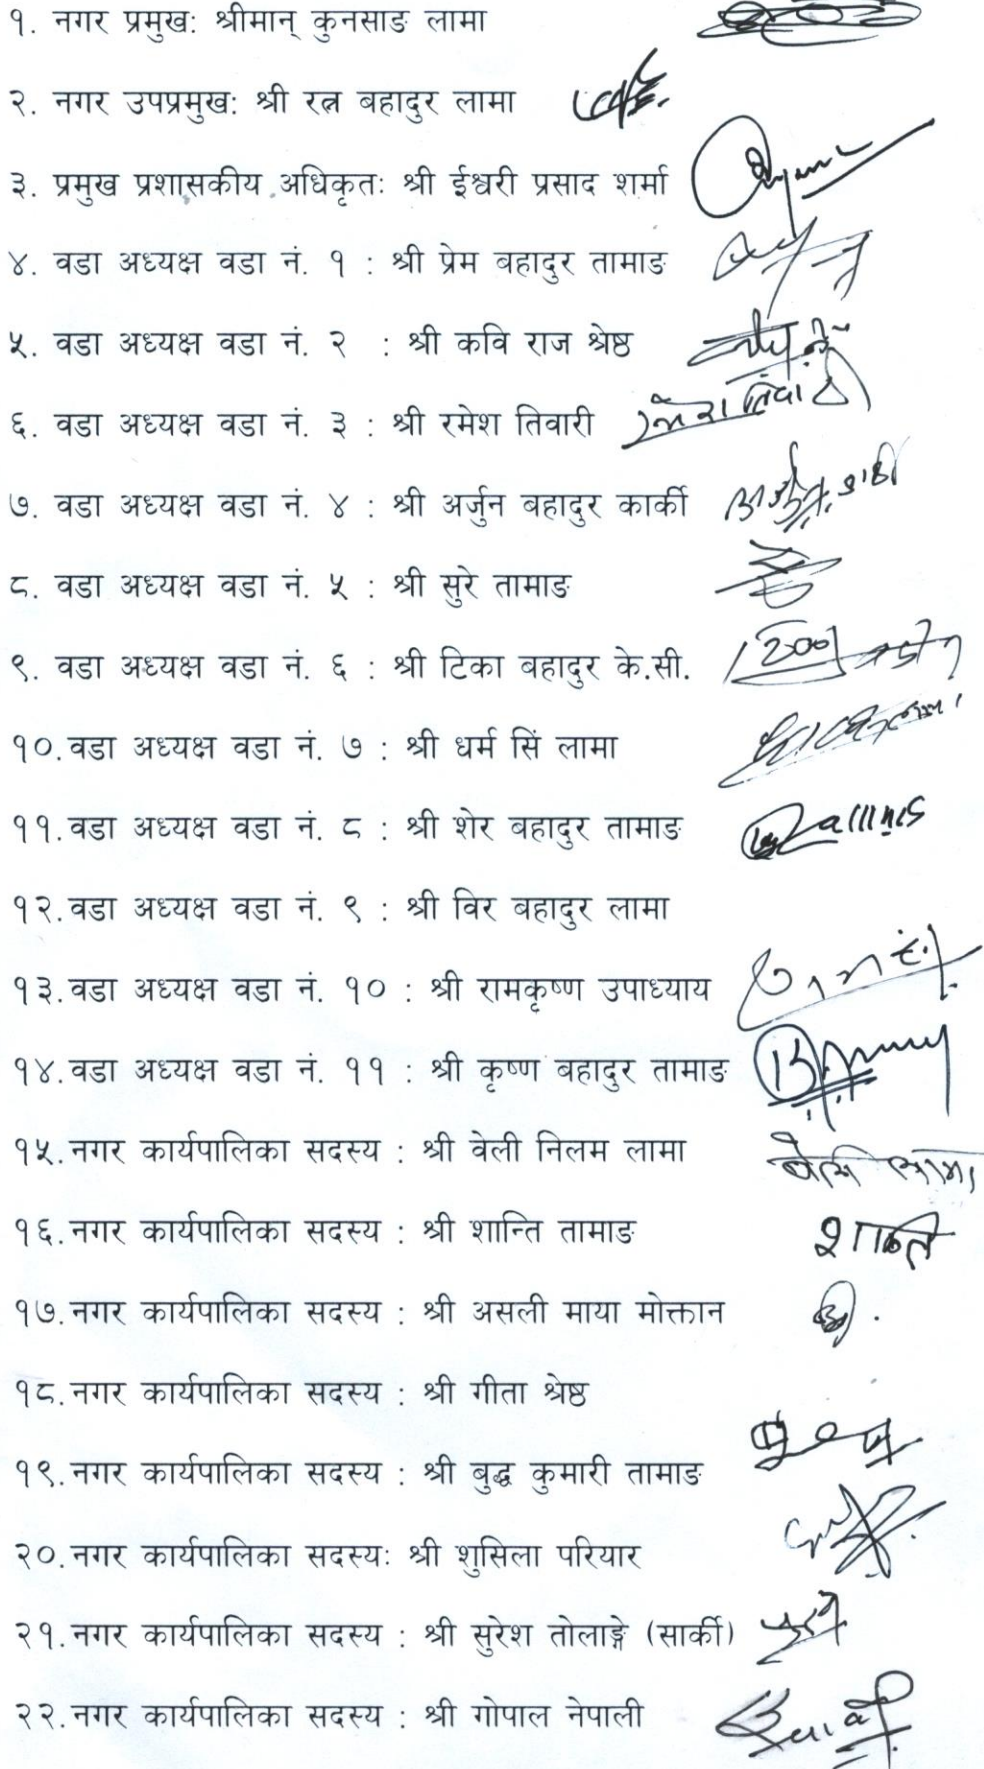 १. नगर प्रमुख: श्रीमान् कुनसाङ लामा
२. नगर उपप्रमुख: श्री रत्न बहादुर लामा
३. प्रमुख प्रशासकीय अधिकृतः श्री ईश्वरी प्रसाद शर्मा
४. वडा अध्यक्ष वडा नं. १ : श्री प्रेम बहादुर तामाङ
५. वडा अध्यक्ष वडा नं. २ : श्री कवि राज श्रेष्ठ
६. वडा अध्यक्ष वडा नं. ३ : श्री रमेश तिवारी
७. वडा अध्यक्ष वडा नं. ४ : श्री अर्जुन बहादुर कार्की
८. वडा अध्यक्ष वडा नं. ५ : श्री सुरे तामाङ
९. वडा अध्यक्ष वडा नं. ६ : श्री टिका बहादुर के.सी.
१०. वडा अध्यक्ष वडा नं. ७ : श्री धर्म सिं लामा
११. वडा अध्यक्ष वडा नं. ८ : श्री शेर बहादुर तामाङ
१२. वडा अध्यक्ष वडा नं. ९ : श्री विर बहादुर लामा
१३. वडा अध्यक्ष वडा नं. १० : श्री रामकृष्ण उपाध्याय
१४. वडा अध्यक्ष वडा नं. ११ : श्री कृष्ण बहादुर तामाङ
१५. नगर कार्यपालिका सदस्य : श्री वेली निलम लामा
१६. नगर कार्यपालिका सदस्य : श्री शान्ति तामाङ शान्ति
१७. नगर कार्यपालिका सदस्य : श्री असली माया मोक्तान
१८. नगर कार्यपालिका सदस्य : श्री गीता श्रेष्ठ
१९. नगर कार्यपालिका सदस्य : श्री बुद्ध कुमारी तामाङ
२०. नगर कार्यपालिका सदस्यः श्री शुसिला परियार
२१. नगर कार्यपालिका सदस्य : श्री सुरेश तोलाङ्गे (सार्की)
२२. नगर कार्यपालिका सदस्य : श्री गोपाल नेपाली